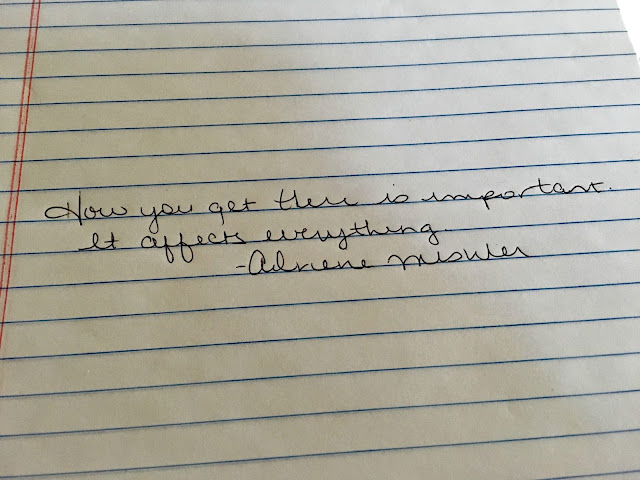 How you get there is important.
It affects everything.
-Adriene Mishler